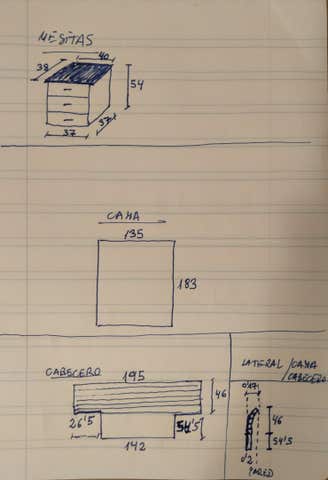 MESITAS
40
38
54
37
37
CAMA
135
183
CABECERO
195
46
26'5
54'5
142
LATERAL/CAMA
CABECERO
0'17
46
54'5
0'2
PARED